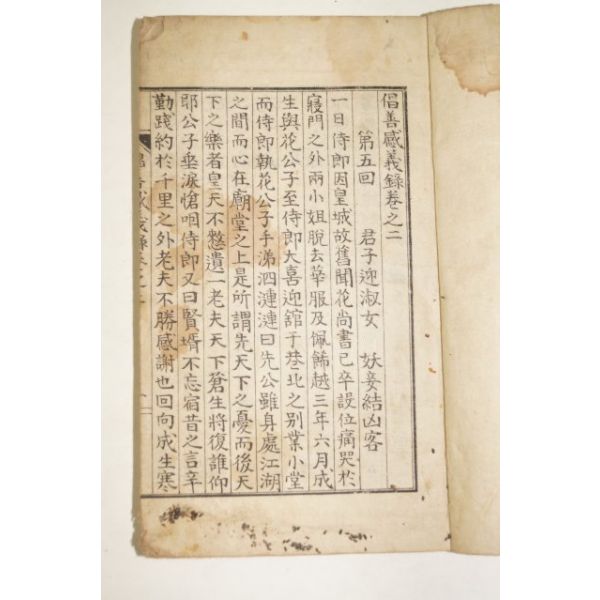 倡善感義錄卷之二
第五回 君子迎淑女 妖妾結凶客
一日侍郎因皇城故舊聞花尚書已卒設位痛哭於
寢門之外兩小姐脫去華服及佩餙越三年六月成
生與花公子至侍郎大喜迎舘于巷北之别業小堂
而侍郎執花公子手涕泗漣漣曰先公雖身處江湖
之間而心在廟堂之上是所謂先天下之憂而後天
下之樂者皇天不憖遺二老夫天下蒼生將復誰仰
耶公子垂淚愴咽侍郎又曰賢壻不忘宿昔之言辛
勤踐約於千里之外老夫不勝感謝也回向成生寒